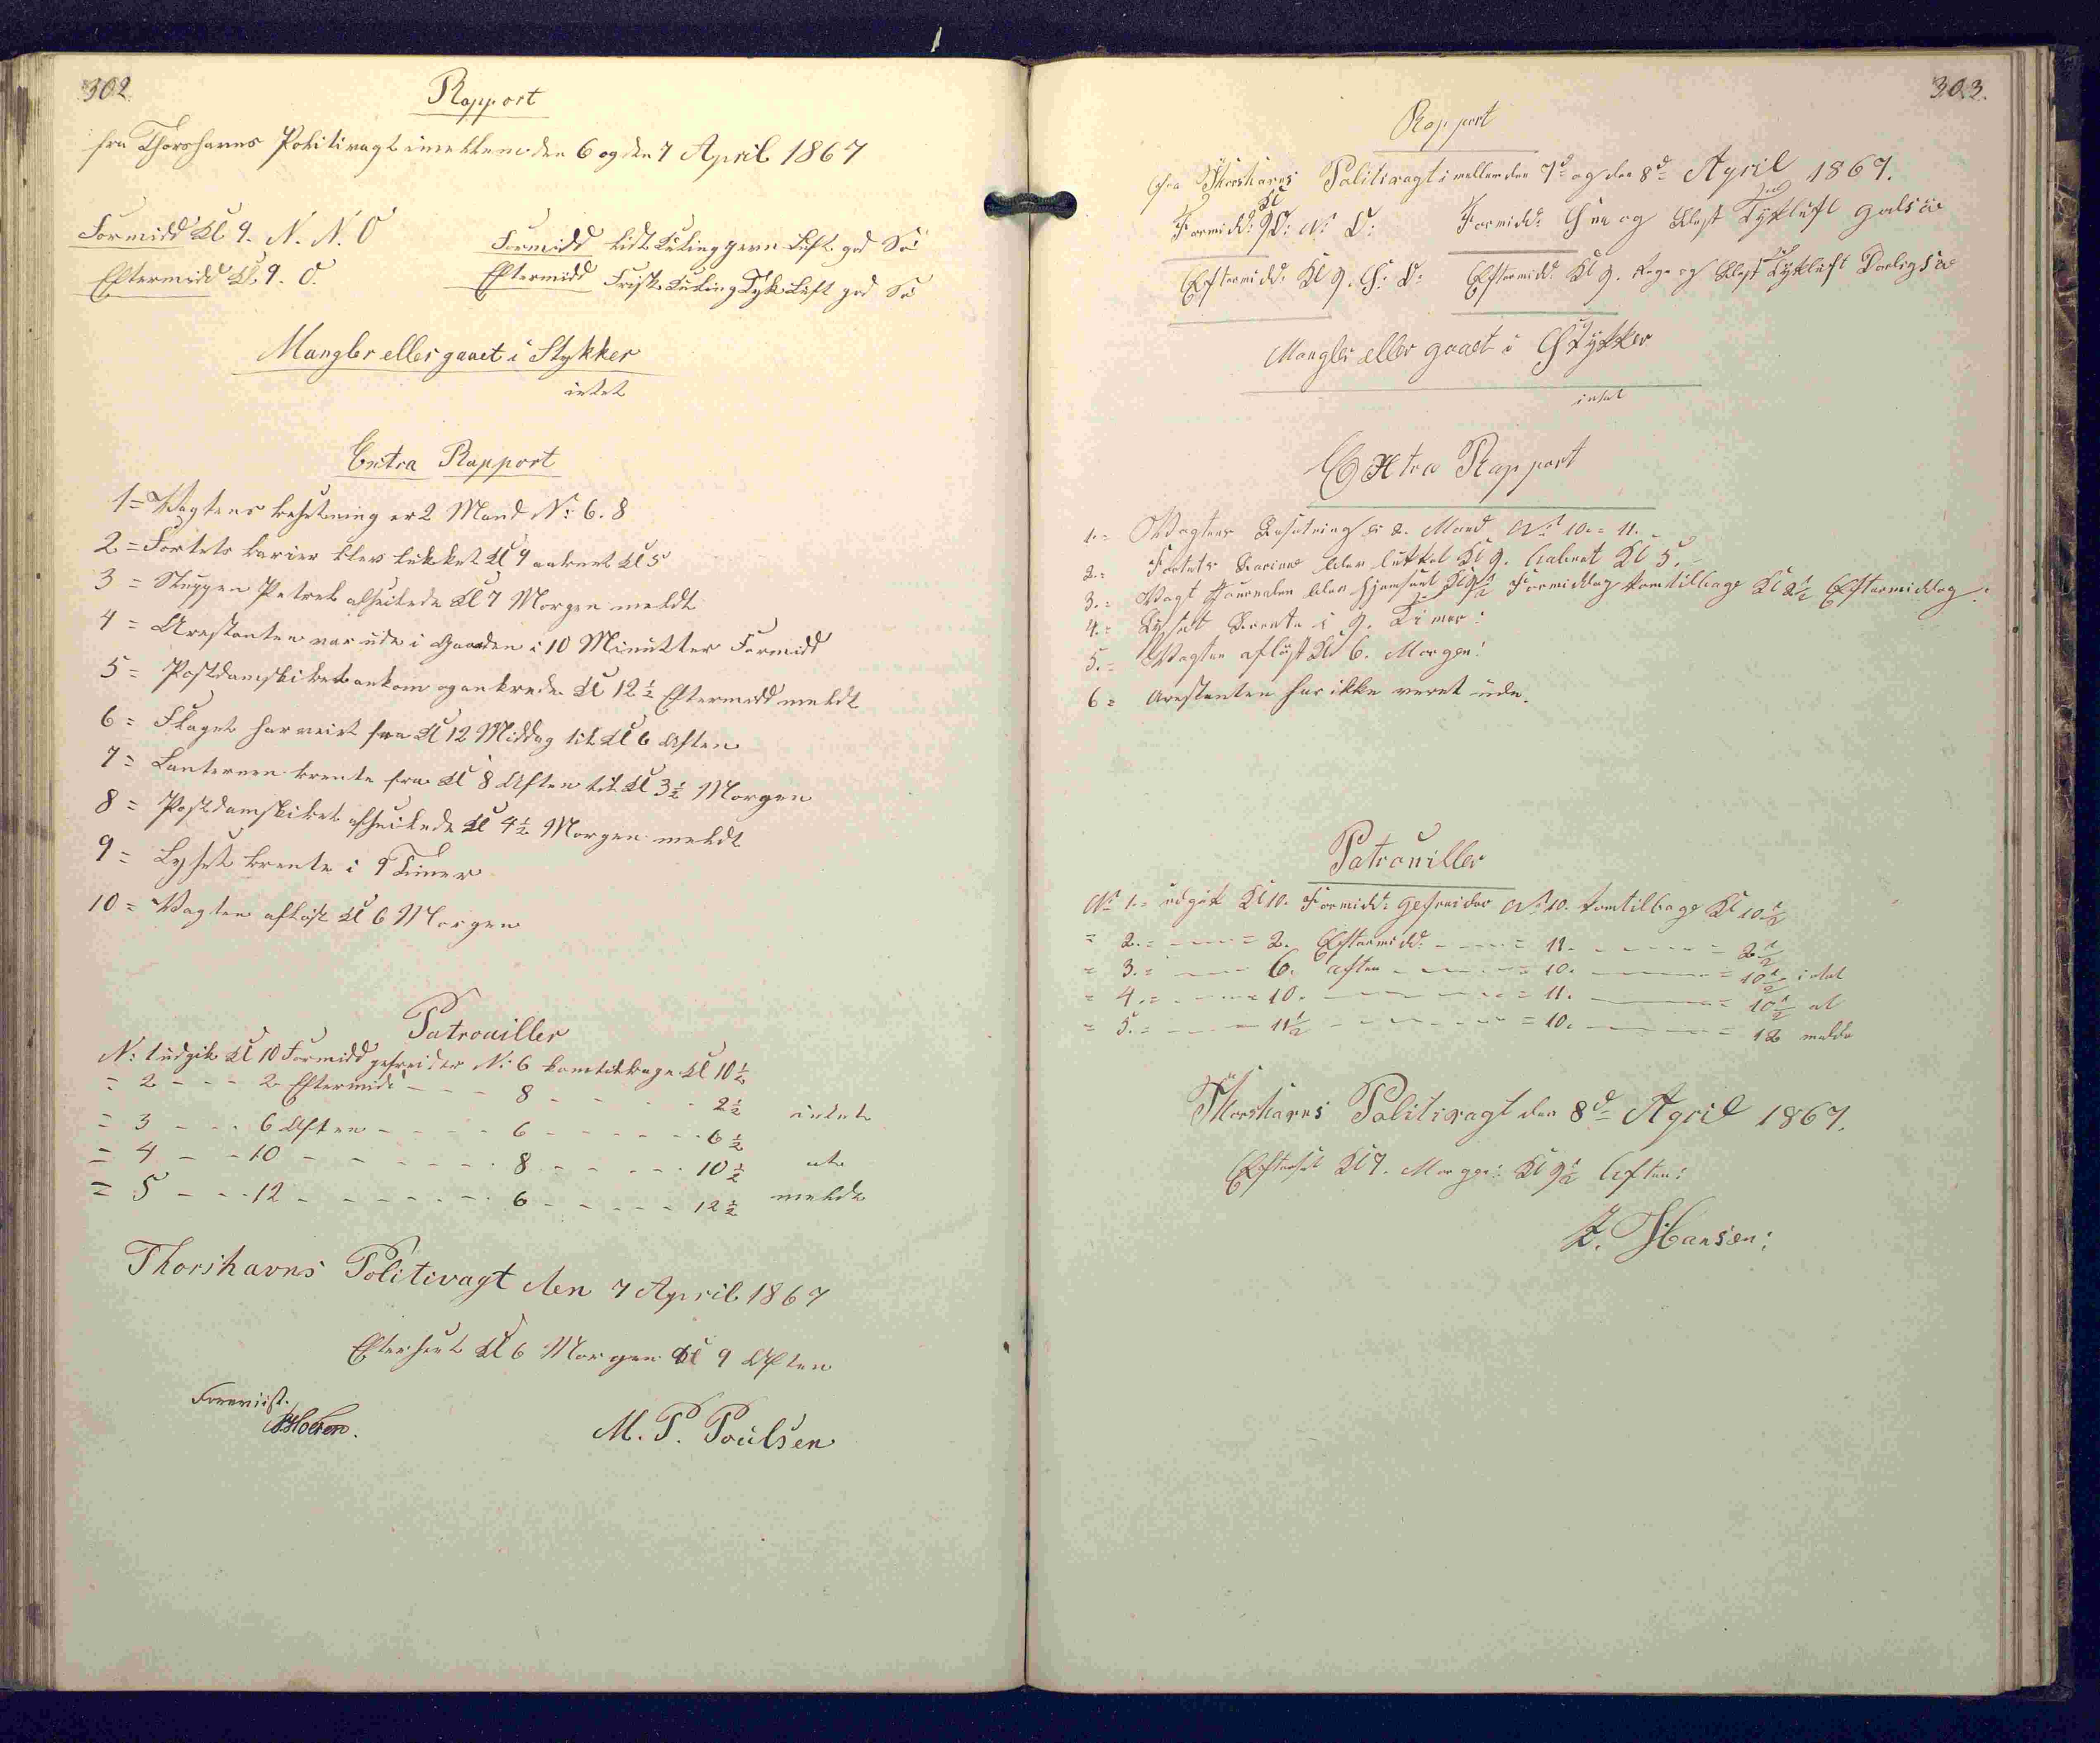 302
Rapport
fra Thorshavns Politivagt imellem den 6 og den 7 April 1867
Formidd Kl. 9. N. N. O
Formidd lidt Kuling graa Luft god Sø
Eftermidd Kl. 9. O.
Eftermidd Frisk Kuling Tyk Luft god Sø
Mangler eller gaaet i Stykker
intet
Extra Rapport
1 = Vagtens besetning er 2 Mand N: 6. 8
2 = Fortets barier blev lukket Kl 9 aabnet Kl 5
3 = Sluppen Petrel afseilede Kl 7 Morgen meldt
4 = Arestanten var ude i Gaarden i 10 Minutter Formidd
5 = Postdamskibet ankom og ankrede Kl 12 ½ Eftermidd meldt
6 = Flaget har veiet fra Kl 12 Middag til Kl 6 Aften
7 = Lanternen brente fra Kl 8 Aften til Kl 3 ½ Morgen
8 = Postdamskibet afseilede Kl 4 ½ Morgen meldt
9 = Lyset brente i 9 Timer
10 = Vagten afløst Kl 6 Morgen
Patrouiller
N: 1 udgik Kl 10 Formidd gefreider N: 6 kom tilbage Kl 10 ½
= 2 - - - 2 Eftermidd - - - 8 - - - - - 2 ½ intet
= 3 - - - 6 Aften - - - - - 6 - - - - - - 6 ½
= 4 - - 10 - - - - - - - 8 - - - - - 10 ½ at
= 5 - - - 12 - - - - - - - 6 - - - - - 12 ½ melde
Thorshavns Politivagt den 7 April 1867
Efterseet Kl 6 Morgen Kl 9 Aften
Foreviist.
M. P. Poulsen
303.
Rapport
fra Thorshavns Politivagt imellem den 7d og den 8d April 1867.
Formidd: Kl 9 O: N: O:
Formidd: Sne og Blest Tykluft god sø
Eftermidd: Kl 9. S: O:
Eftermidd: Kl 9. Rægn og Blest Tykluft Daarlig sø
Mangler eller gaaet i Stykker
intet
Extra Rapport
1. = Vagtens Besetning er 2. Mand No 10. = 11. -
2. = Fortets Bariere blev lukket Kl 9. aabnet Kl 5.
3. = Vagt Journalen blev hjemsent Kl 9 ½ Formiddag kom tilbage Kl 2 ½ Eftermiddag:
4. = Lyset Brente i 9. Timer:
5. = Vagten afløst Kl 6. Morgen:
6 = Arestanten har ikke veret ude.
Patrouiller
No 1. = udgik Kl 10. Formidd: gefreider No 10. kom tilbage Kl 10 ½
= 2. = - - - = 2. Eftermidd: - - - = 11. - - - - = 2 ½
= 3. = - - - 6. aften - - - - = 10. - - - - = 10 ½ intet
= 4. = - - - = 10. - - - - - = 11. - - - - = 10 ½ at
= 5. = - - - 11 ½ - - - - - = 10. - - - - = 12 melde
Thorshavns Politivagt den 8d April 1867.
Efterset Kl 7. Morgen: Kl 9 ½ Aften:
Hansen: